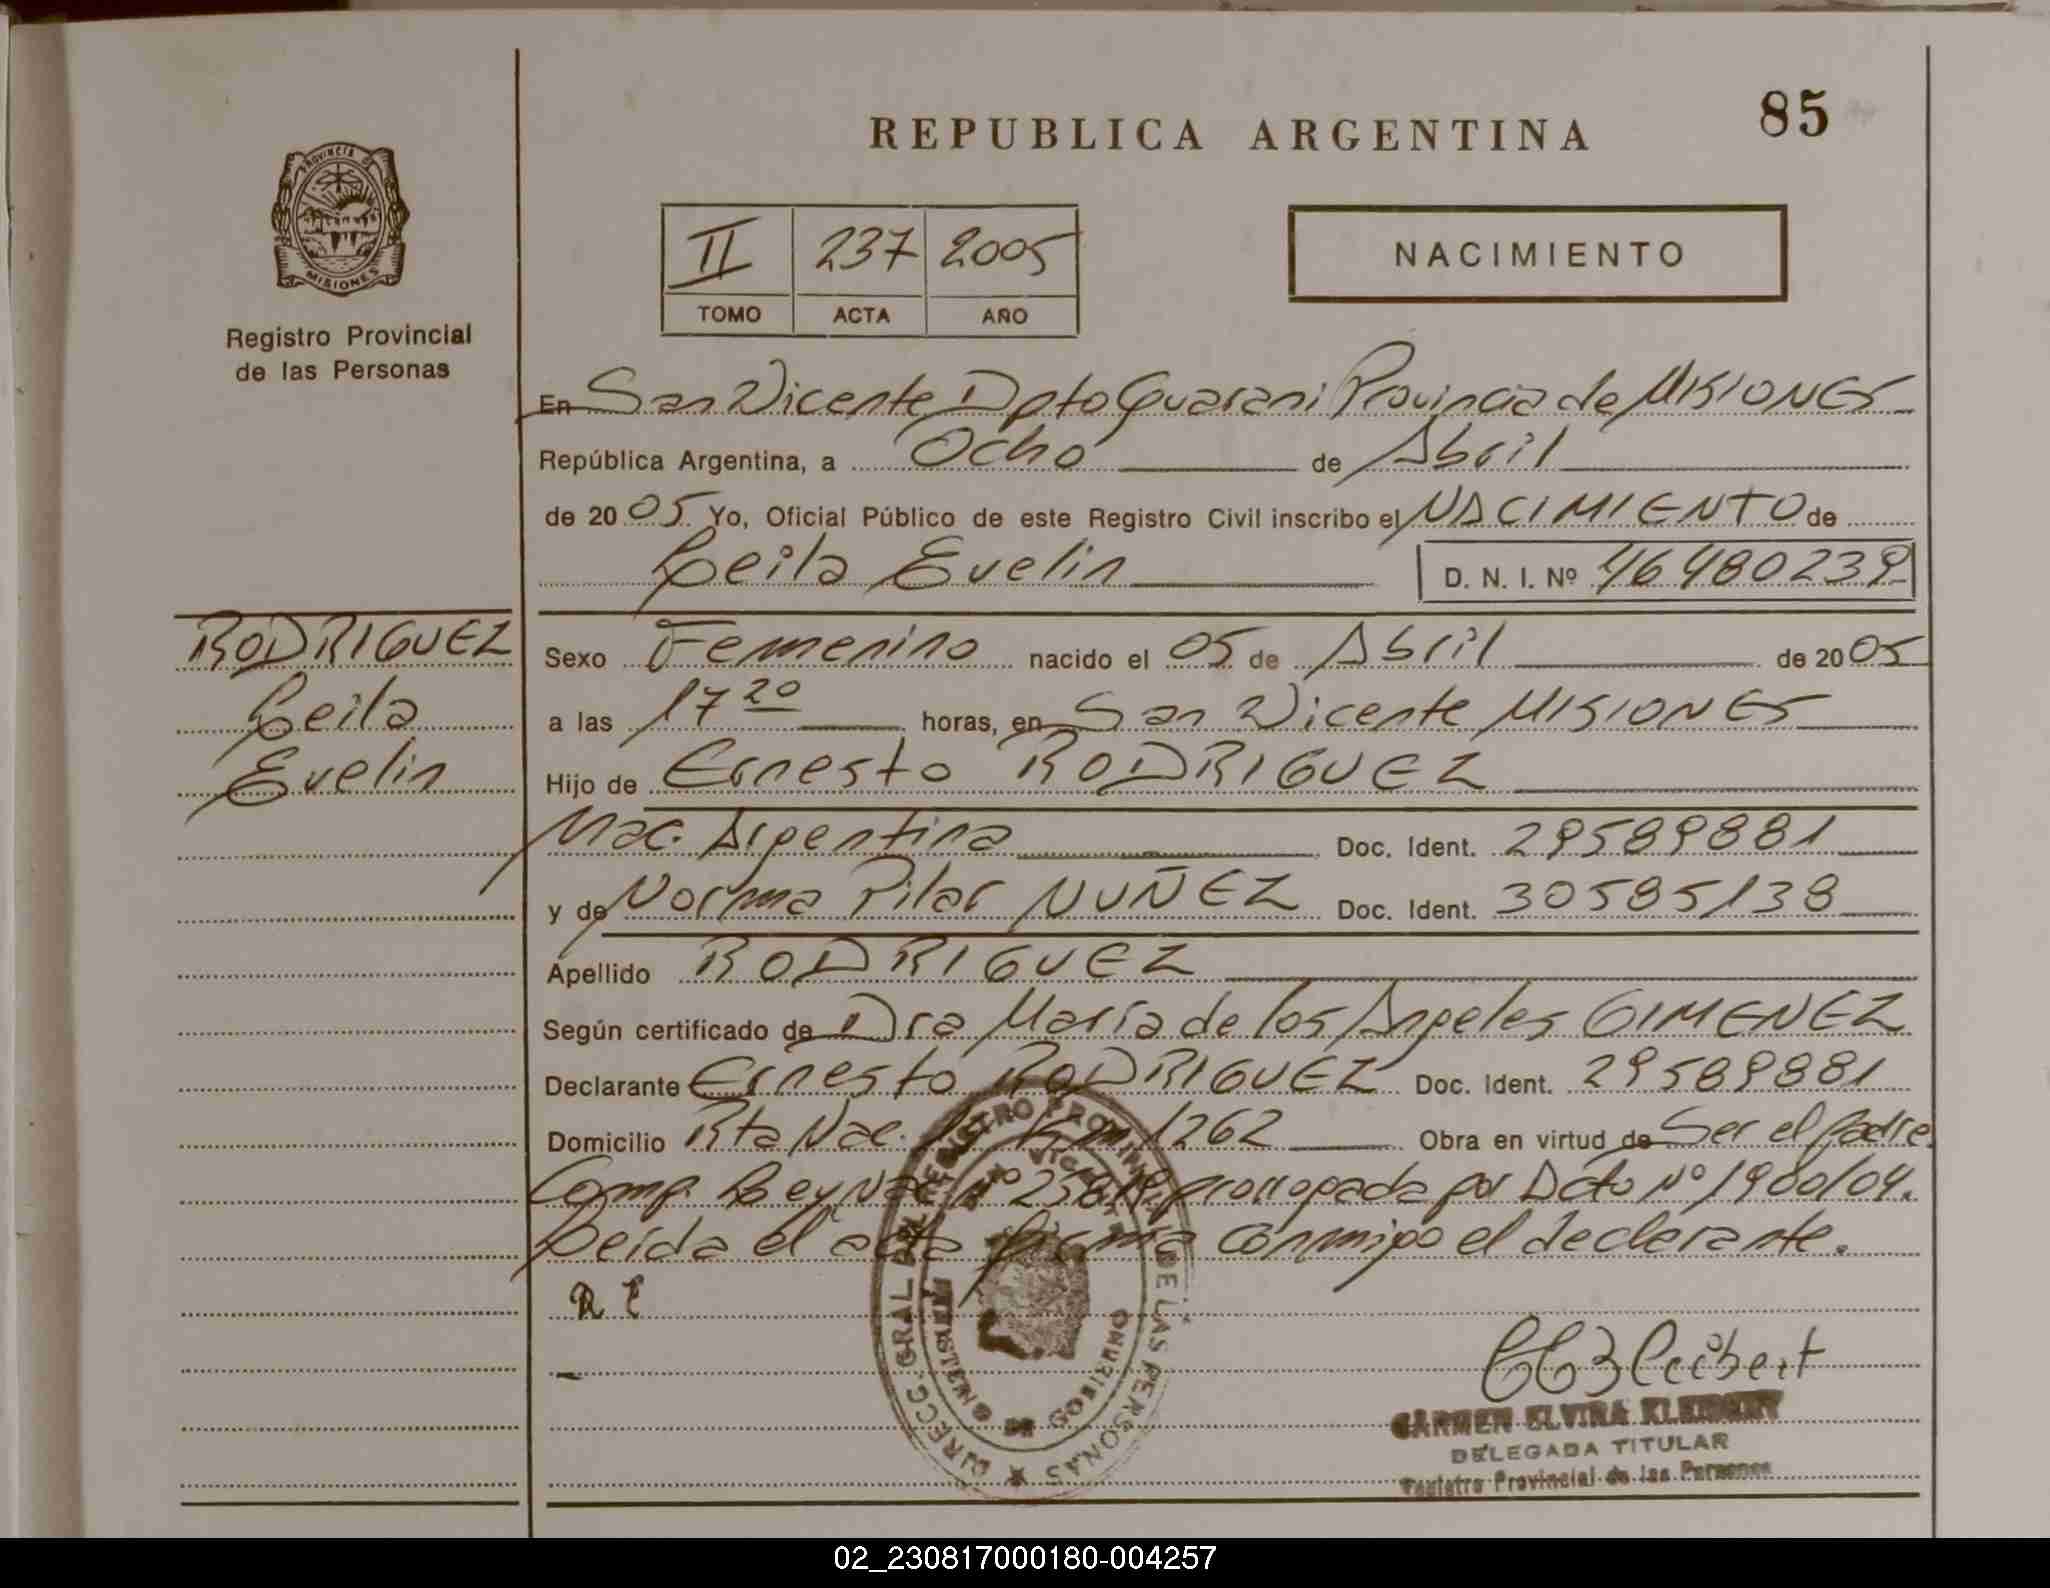 85
REPUBLICA ARGENTINA
PROVINCIA DE
MISIONES
Registro Provincial
de las Personas
II 237 2005
TOMO ACTA AÑO
NACIMIENTO
En San Vicente Dpto Guarani Provincia de MISIONES
República Argentina, a Ocho de Abril
de 2005 Yo, Oficial Público de este Registro Civil inscribo el NACIMIENTO de
Leila Evelin D. N. I. Nº 46480239
RODRIGUEZ
Leila
Evelin
Sexo Femenino nacido el 05 de Abril de 2005
a las 17 20 horas, en San Vicente MISIONES
Hijo de Ernesto RODRIGUEZ
Nac. Argentina Doc. Ident. 29589881
y de Norma Pilar NUÑEZ Doc. Ident. 30585138
Apellido RODRIGUEZ
Según certificado de Dra María de los Angeles GIMENEZ
Declarante Ernesto RODRIGUEZ Doc. Ident. 29589881
Domicilio Rta Nac. Km 1262 Obra en virtud de Ser el padre.
Comp. Ley Nac. Nº prorrogada por Dcto Nº 1900/04.
Leída el acta firma conmigo el declarante.
R E
DIRECC. GRAL DEL REGISTRO PROVINCIAL DE LAS PERSONAS
SAN VICENTE
MINISTERIO DE GOBIERNO
CARMEN ELVIRA
DELEGADA TITULAR
Registro Provincial de las Personas
02_230817000180-004257